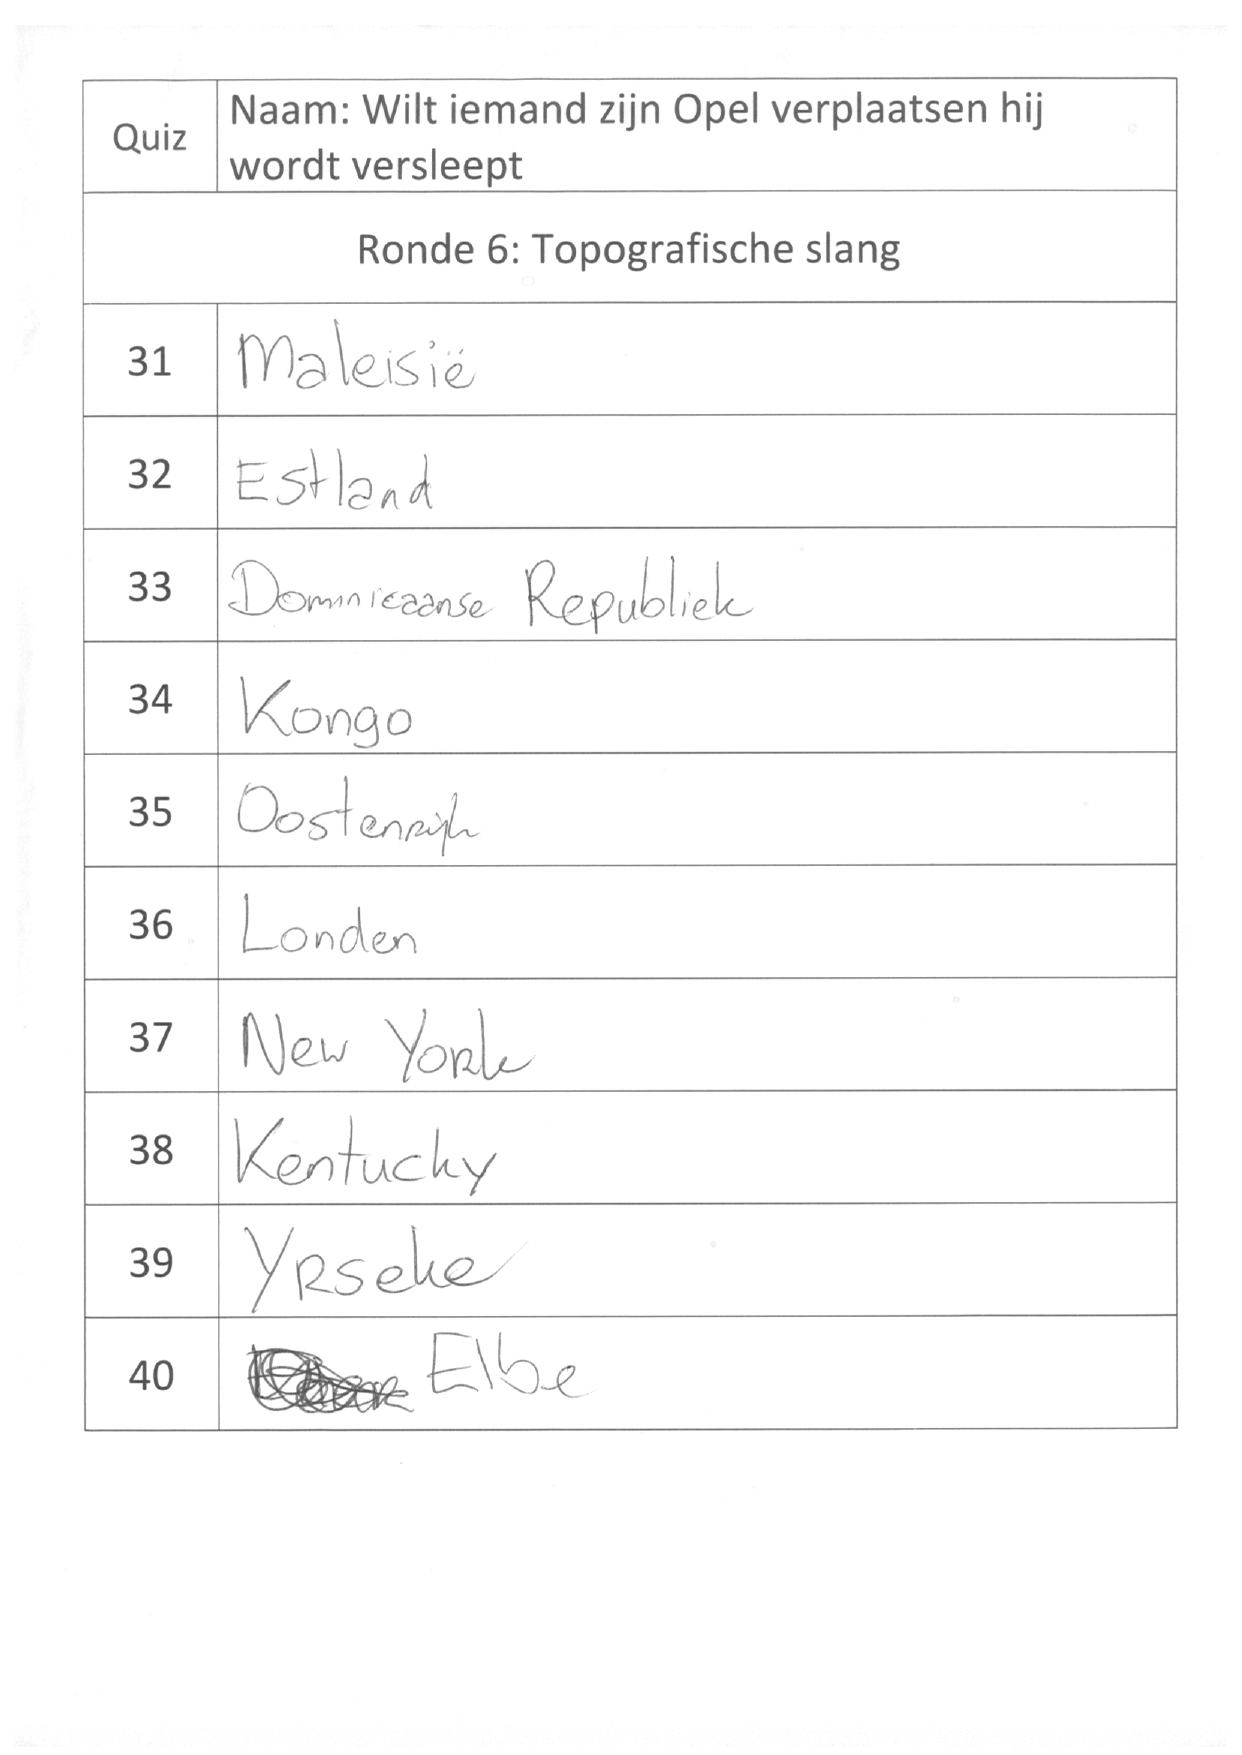 Quiz
Naam: Wilt iemand zijn Opel verplaatsen hij
wordt versleept
Ronde 6: Topografische slang
31 Maleisië
32 Estland
33 Dominicaanse Republiek
34 Kongo
35 Oostenrijk
36 Londen
37 New York
38 Kentucky
39 Yrseke
40 Elbe